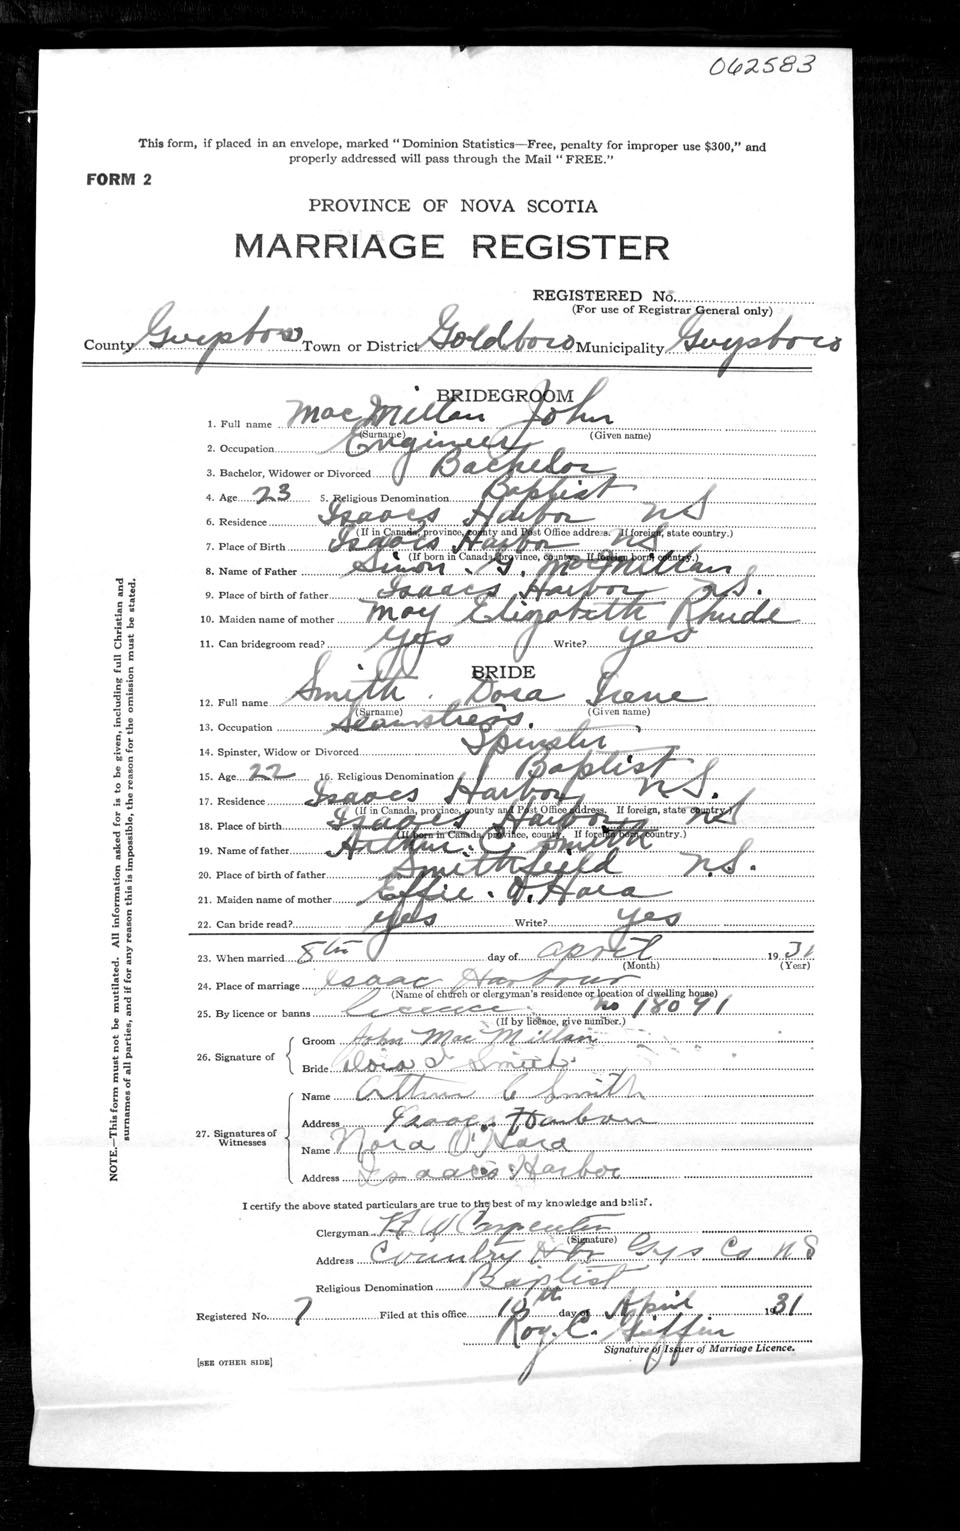 062583
This form, if placed in an envelope, marked "Dominion Statistics—Free, penalty for improper use $300," and
properly addressed will pass through the Mail "FREE."
FORM 2
PROVINCE OF NOVA SCOTIA
MARRIAGE REGISTER
REGISTERED No.
(For use of Registrar General only)
County Guysboro Town or District Goldboro Municipality Guysboro
BRIDEGROOM
1. Full name MacMillan John
(Surname) (Given name)
2. Occupation Engineer
3. Bachelor, Widower or Divorced Bachelor
4. Age 23 5. Religious Denomination Baptist
6. Residence Isaacs Harbor NS
(If in Canada, province, county and Post Office address. If foreign, state country.)
7. Place of Birth Isaacs Harbor NS
(If born in Canada, province, county. If foreign born, country.)
8. Name of Father Simon G. McMillan
9. Place of birth of father Isaacs Harbor N.S.
10. Maiden name of mother May Elizabeth Rhude
11. Can bridegroom read? Yes Write? yes
BRIDE
12. Full name Smith Dora Irene
(Surname) (Given name)
13. Occupation Seamstress.
14. Spinster, Widow or Divorced Spinster
15. Age 22 16. Religious Denomination Baptist
17. Residence Isaacs Harbor NS.
(If in Canada, province, county and Post Office address. If foreign, state country.)
18. Place of birth Isaacs Harbor NS
(If born in Canada, province, county. If foreign born, country.)
19. Name of father Arthur. C. Smith
20. Place of birth of father Smithfield N.S.
21. Maiden name of mother Effie. O'Hara
22. Can bride read? yes Write? yes
23. When married 8th day of April 1931
(Month) (Year)
24. Place of marriage Isaac Harbour
(Name of church or clergyman's residence or location of dwelling house)
25. By licence or banns licence No 18091
(If by licence, give number.)
26. Signature of
Groom John MacMillan
Bride Smith
27. Signatures of Witnesses
Name Arthur C Smith
Address Isaacs Harbour
Name Nora O'Hara
Address Isaacs Harbor
I certify the above stated particulars are true to the best of my knowledge and belief.
Clergyman Carpenter
(Signature)
Address Country Hbr Guys Co NS
Religious Denomination Baptist
Registered No. 7 Filed at this office day of April 1931
Roy. C. Giffin
Signature of Issuer of Marriage Licence.
[SEE OTHER SIDE]
NOTE.—This form must not be mutilated. All information asked for is to be given, including full Christian and
surnames of all parties, and if for any reason this is impossible, the reason for the omission must be stated.